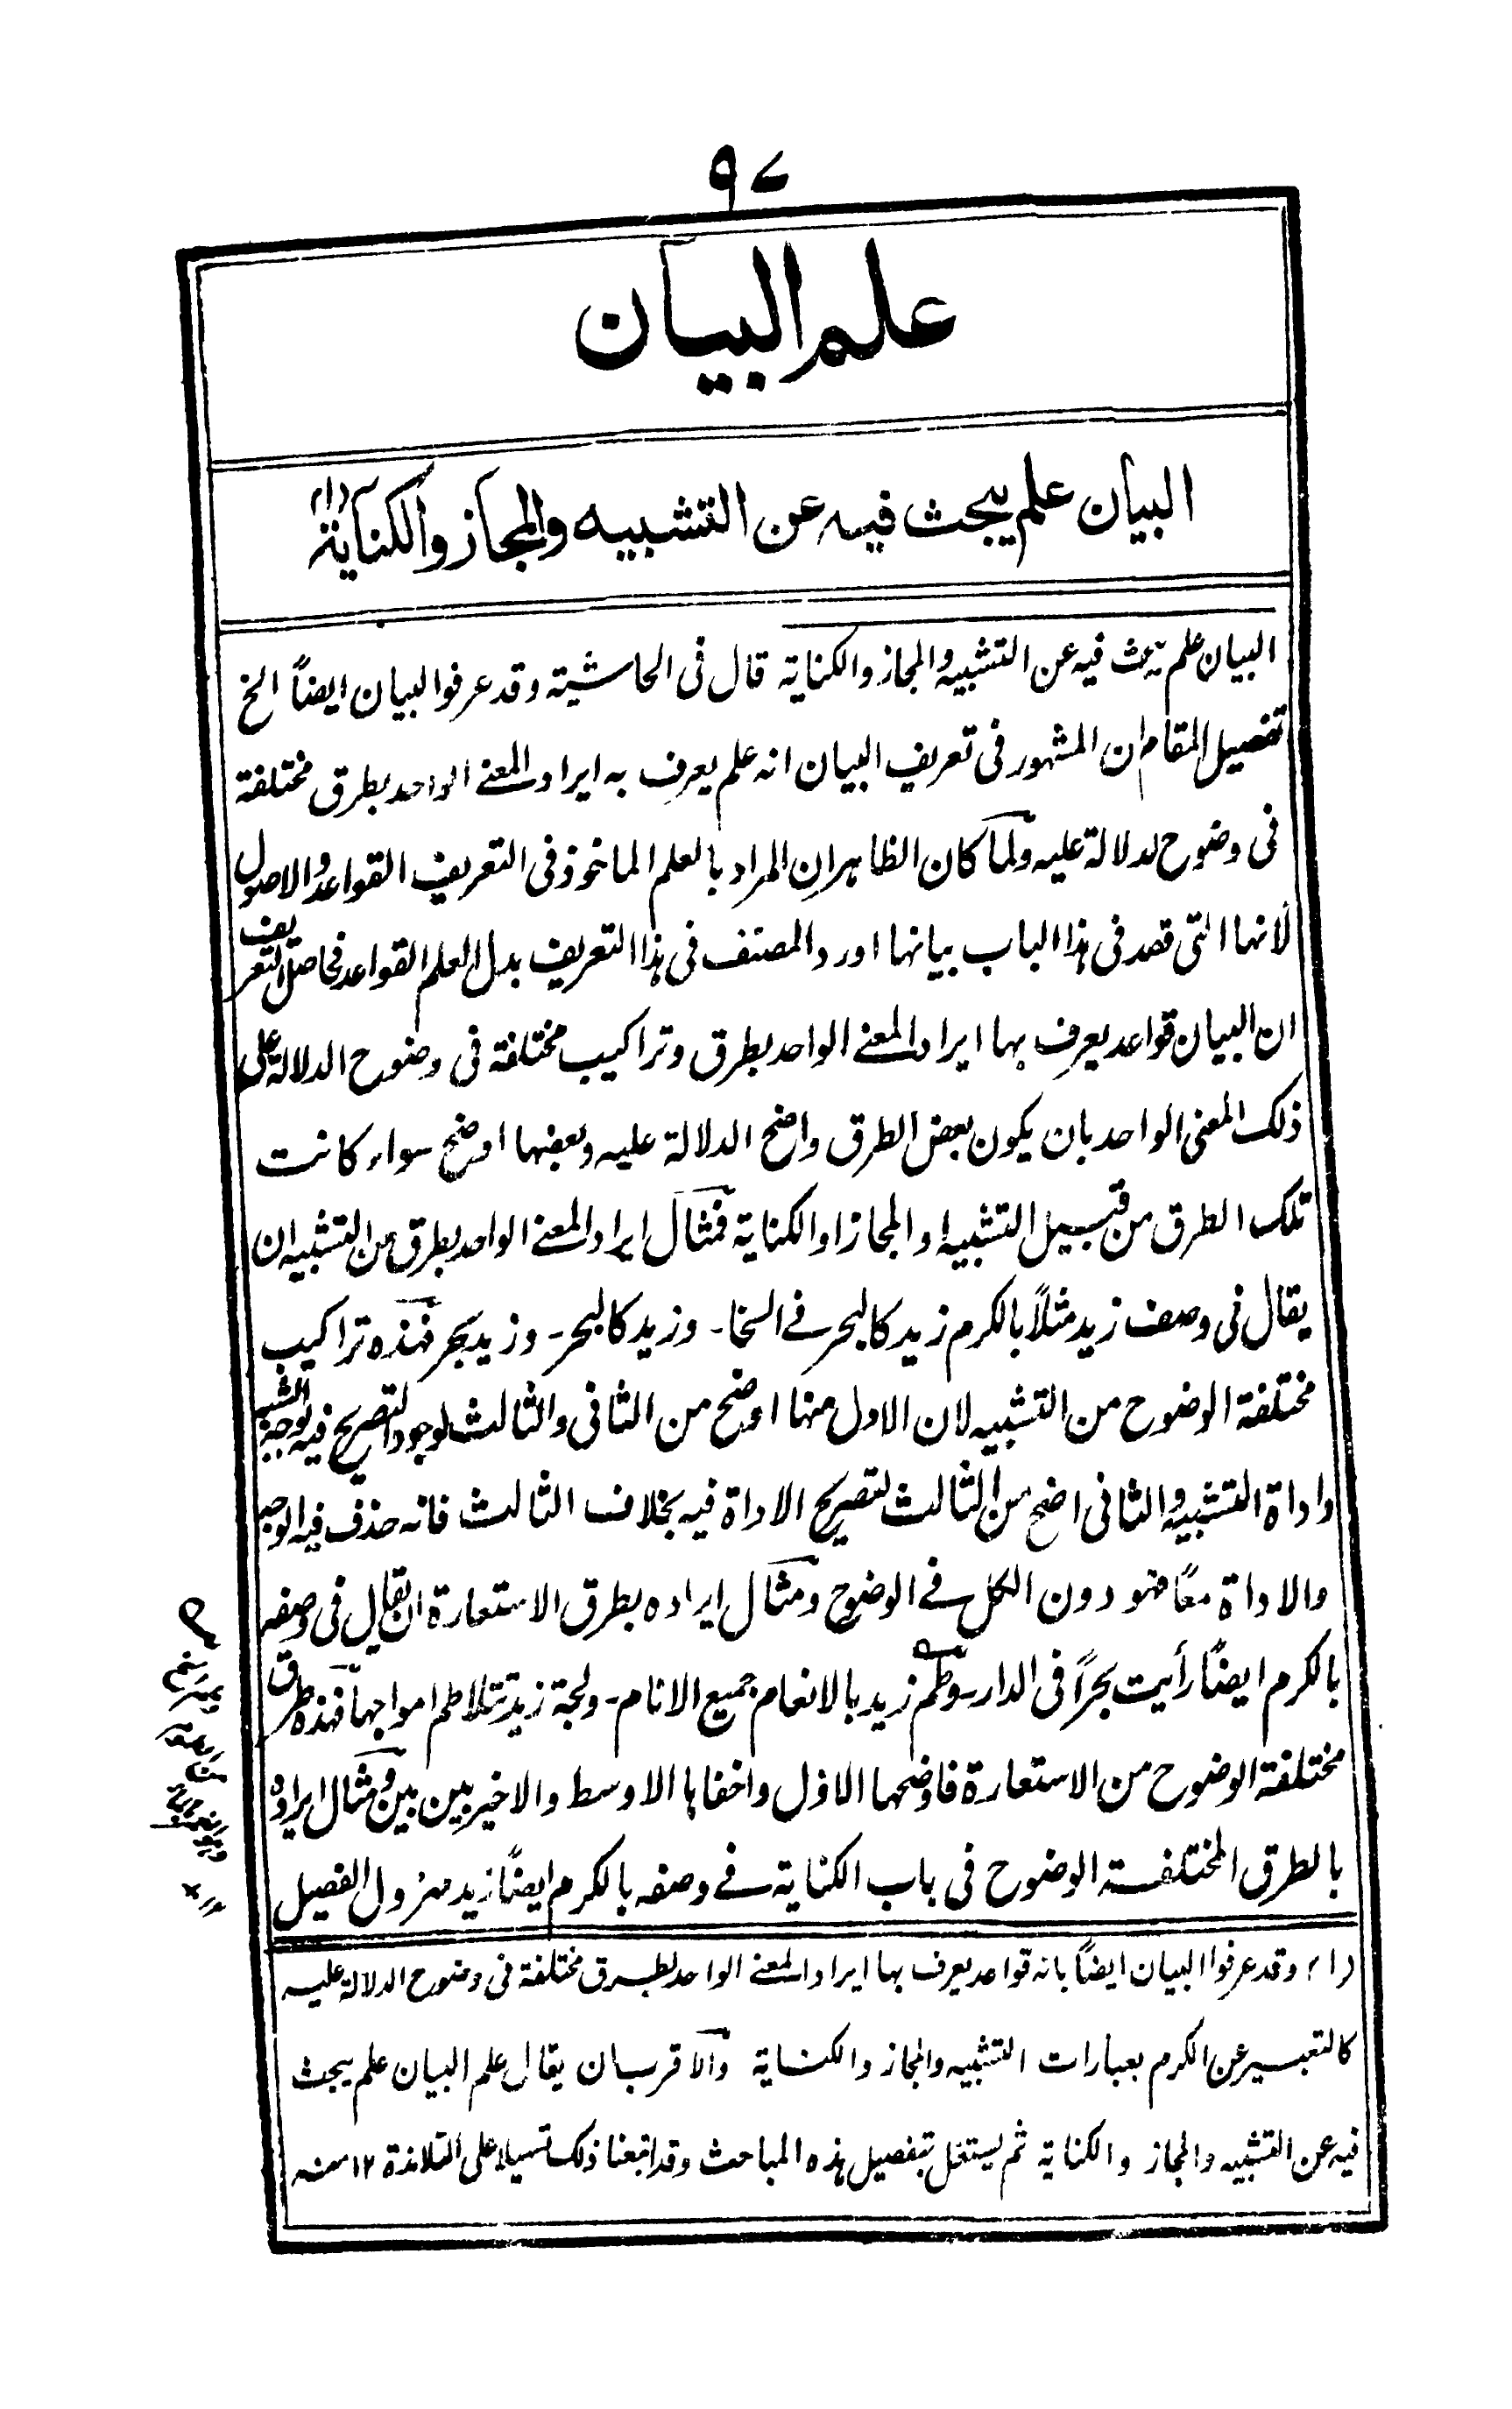 ٩٧
علم البيان
البيان علم يبحث فيه عن التشبيه والمجاز والكناية (١)
البيان علم يبحث فيه عن التشبيه والمجاز والكناية قال فى الحاشية وقد عرفوا البيان ايضاً الخ
تفصيل المقام ان المشهور فى تعريف البيان انه علم يعرف به ايراد المعنے الواحد بطرق مختلفة
فى وضوح لدلالة عليه ولما كان الظاهر ان المراد بالعلم الماخوذ فى التعريف القواعد والاصول
لانها التى قصد فى هذا الباب بيانها اورد المصنف فى هذا التعريف بدل العلم القواعد فحاصل التعريف
ان البيان قواعد يعرف بها ايراد المعنے الواحد بطرق وتراكيب مختلفة فى وضوح الدلالة على
ذلك المعنى الواحد بان يكون بعض الطرق واضح الدلالة عليه وبعضها اوضح سواء كانت
تلك الطرق من قبيل التشبيه او المجاز او الكناية فمثال ايراد المعنے الواحد بطرق من التشبيه ان
يقال فى وصف زيد مثلاً بالكرم زيد كالبحر فے السخا۔ وزيد كالبحر۔ وزيد بحر فهذه تراكيب
مختلفة الوضوح من التشبيه لان الاول منها اوضح من الثانى والثالث لوجود التصريح فيه بوجه الشبه
واداة التشبيه والثانى اضح من الثالث لتصريح الاداة فيه بخلاف الثالث فانه حذف فيه الوجه
والاداة معًا فهو دون الكل فے الوضوح ومثال ايراده بطرق الاستعارة ان يقال فى وصفه
بالكرم ايضًا رأيت بحرًا فى الدار۔ وطم زيد بالانعام جميع الانام۔ ولجة زيد تتلاطم امواجها فهذه طرق
مختلفة الوضوح من الاستعارة فاوضحها الاول واخفاها الاوسط والاخير بين بين ومثال ايراده
بالطرق المختلفة الوضوح فى باب الكناية فے وصفه بالكرم ايضًا زيد مهزول الفصيل
(١) وقد عرفوا البيان ايضًا بانه قواعد يعرف بها ايراد المعنے الواحد بطرق مختلفة فى وضوح الدلالة عليه
كالتعبير عن الكرم بعبارات التشبيه والمجاز والكناية والاقرب ان يقال علم البيان علم يبحث
فيه عن التشبيه والمجاز والكناية ثم يستغل بتفصيل هذه المباحث وقد اتبعنا ذلك تسهيلا على التلامذة ١٢ منه